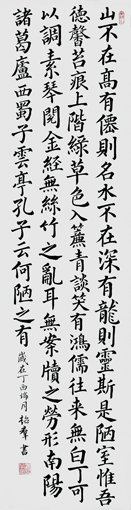 山不在高有僊則名水不在深有龍則靈斯是陋室惟吾
德馨苔痕上階綠草色入簾青談笑有鴻儒往來無白丁可
以調素琴閱金經無絲竹之亂耳無案牘之勞形南陽
諸葛廬西蜀子雲亭孔子云何陋之有 歲在丁酉端月 羣書